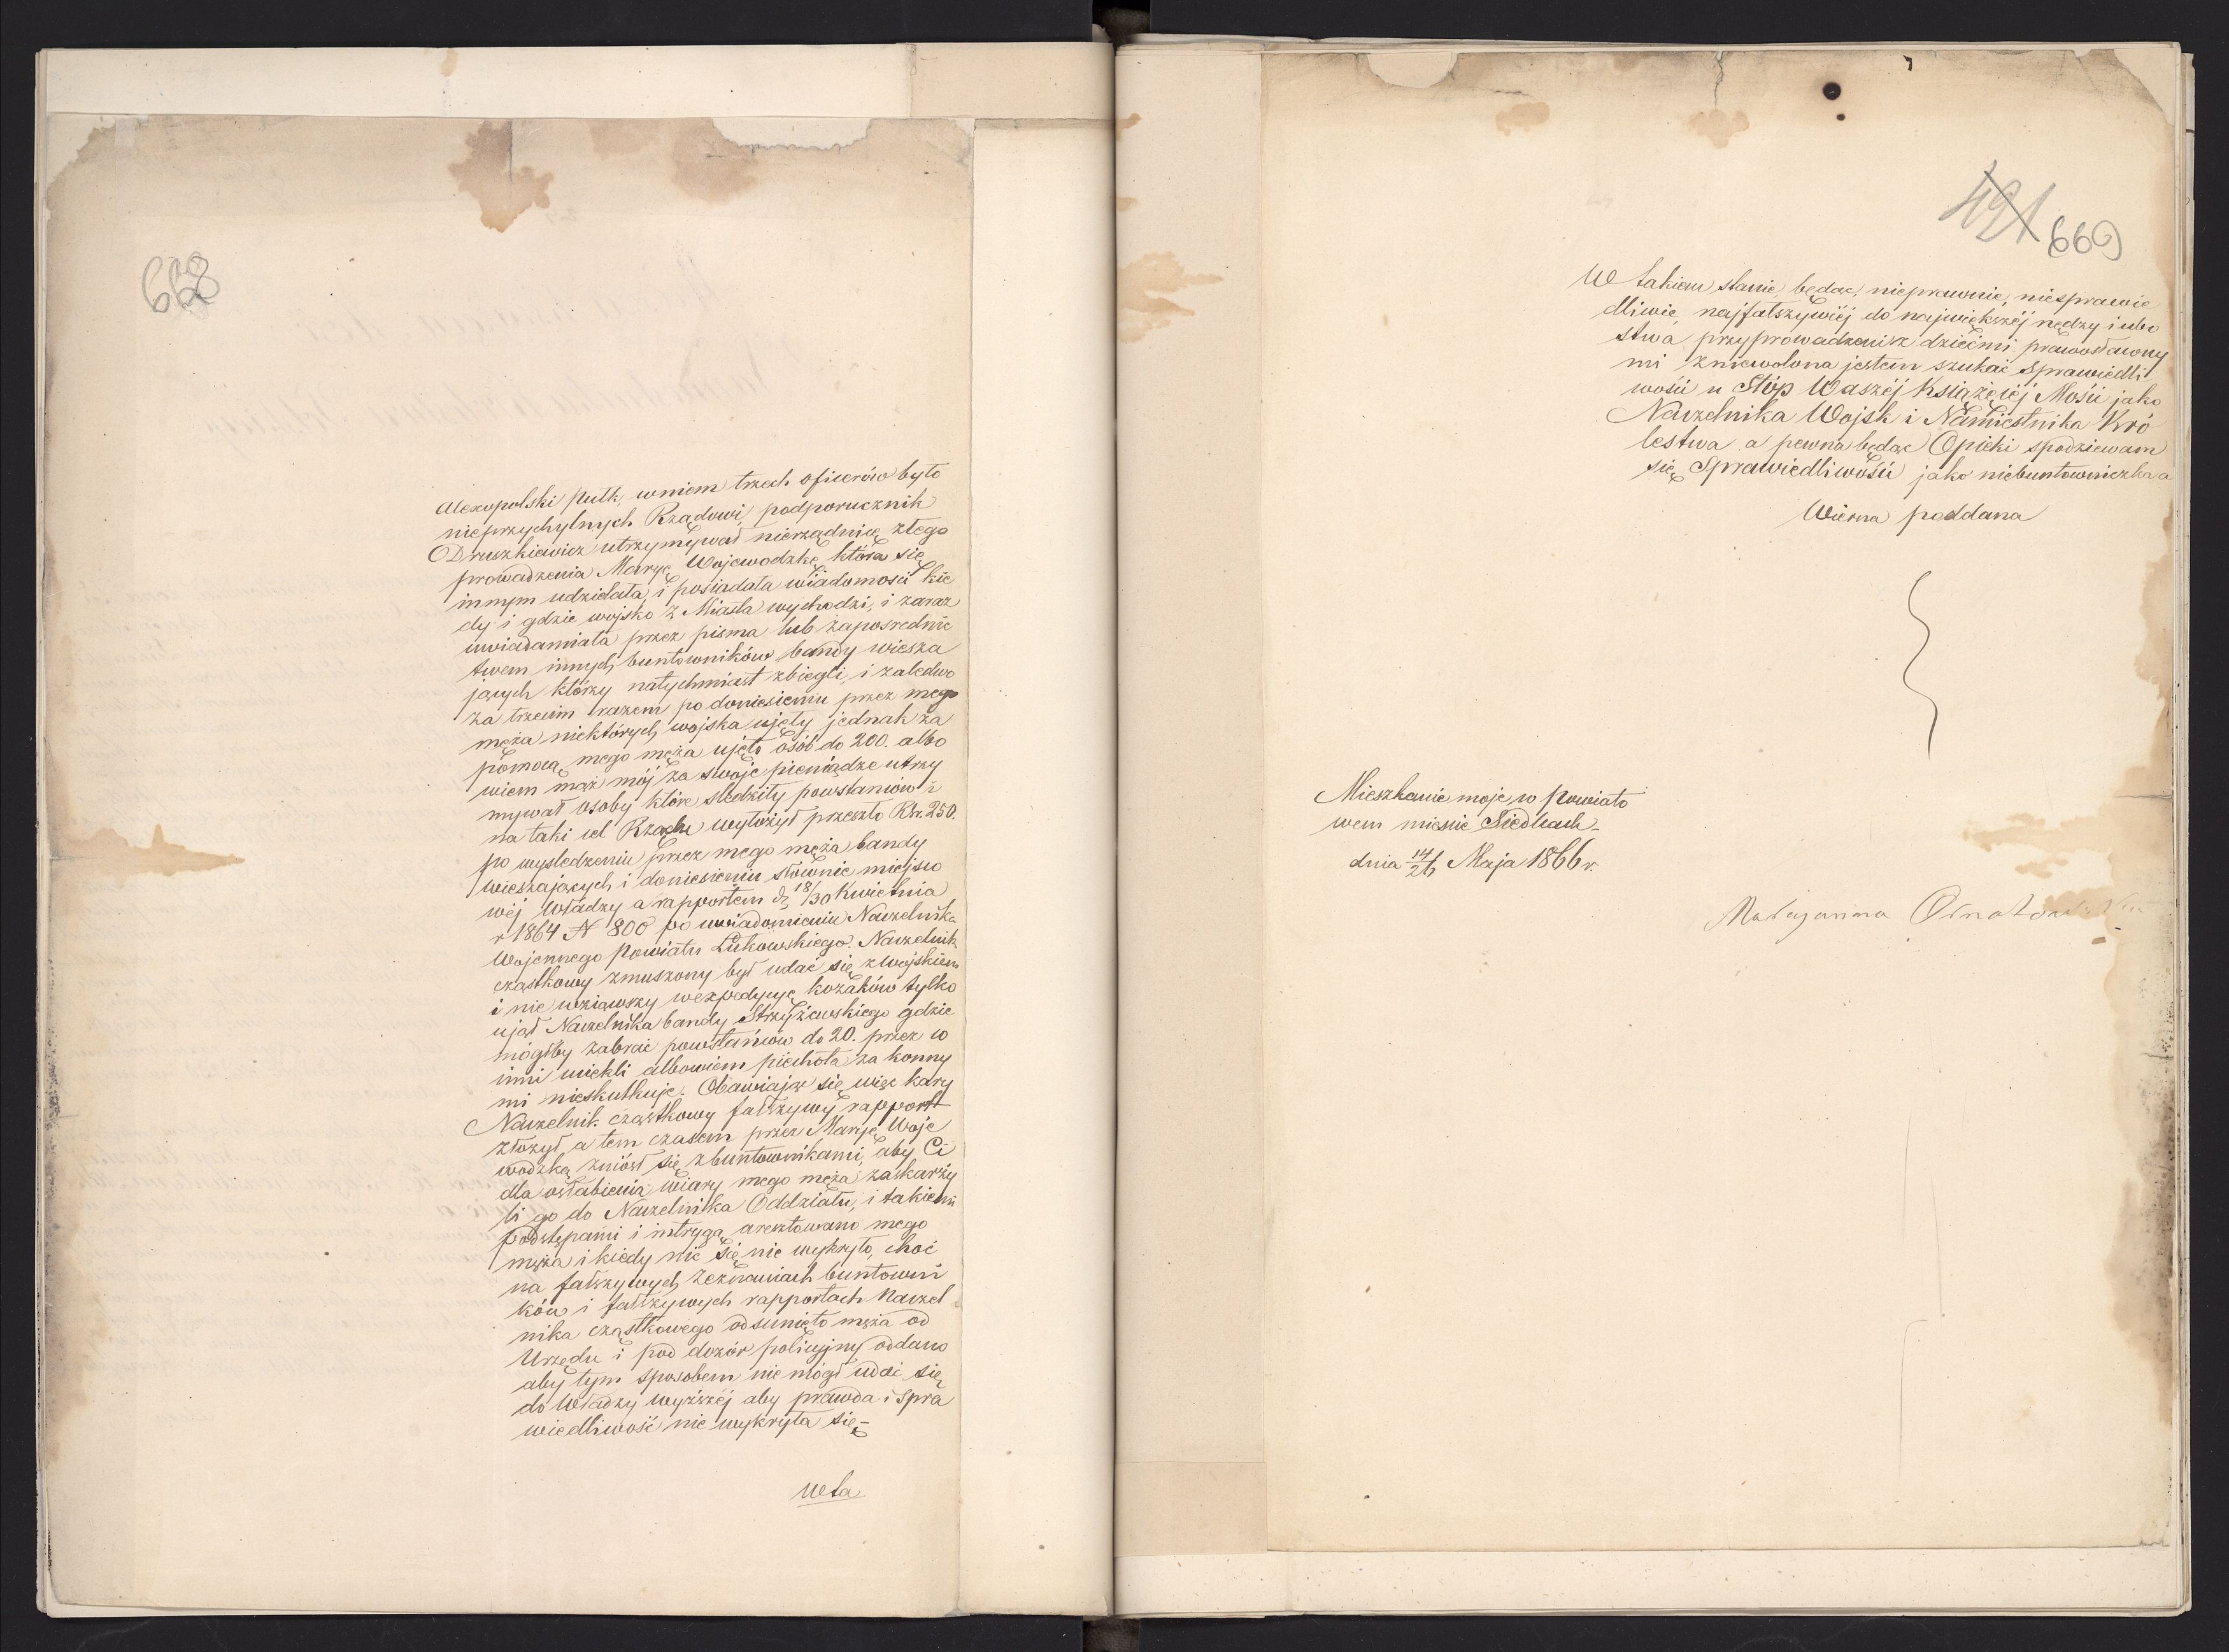 668
Alexopolski pułk, wniem trzech oficerów było
nieprzychylnych Rządowi, podporucznik
Druszkiewicz utrzymywał nierządnicę złego
prowadzenia Maryę Wojewodzkę, która się
innym udzielała, i posiadała wiadomości kie
dy i gdzie wojsko z Miasta wychodzi, i zaraz
uwiadamiała przez pisma lub zapośrednic
twem innych buntowników bandy wiesza
jących którzy natychmiast zbiegli, i zaledwo
za trzecim razem po doniesieniu przez mego
męża niektórych wojska ujęły jednak za
pomocą mego męża ujęto osób do 200. albo
wiem mąż mój za swoje pieniądze utrzy
mywał osoby które śledziły powstańców i
na taki cel Rządu wyłożył przeszło Rsr. 250.
po wyśledzeniu przez mego męża bandy
wieszających i doniesieniu słownie miejsco
wéj Władzy a rapportem d. 18/30 Kwietnia
r 1864 N 800 po uwiadomieniu Naczelnika
Wojennego Powiatu Łukowskiego. Naczelnik
cząstkowy zmuszony był udać się z wojskiem
i nie wziąwszy wexpedycyę kozaków tylko
ujął Naczelnika bandy Strzyżewskiego gdzie
mógłby zabrać powstańców do 20. przez co
inni uciekli albowiem piechota za konny
mi nieskutkuje. Obawiając się więc kary
Naczelnik cząstkowy fałszywy rapport
złożył, a tem czasem przez Maryę Woje
wodzką zniósł się z buntownikami, aby Ci
dla osłabienia wiary mego męża zaskarży
li go do Naczelnika Oddziału, i takiemi
podstępami i intrygą aresztowano mego
męża i kiedy nic się nie wykryło, choć
na fałszywych zeznaniach buntowni
ków i fałszywych rapportach Naczel
nika cząstkowego odsunięto męża od
Urzędu i pod dozór policyjny oddano
aby tym sposobem nie mógł udać się
do Władzy wyższéj aby prawda i Spra
wiedliwość nie wykryła się –
W ta
491 669
W takiem stanie będąc, nieprawnie, niesprawie
dliwie, najfałszywiéj do największéj nędzy i ubo
stwa przyprowadzeni z dziećmi prawosławny
mi zniewolona jestem szukać Sprawiedli
wości u Stóp Waszéj Książęcéj Mości jako
Naczelnika Wojsk i Namiestnika Kró
lestwa a pewna będąc Opieki spodziewam
się Sprawiedliwości jako niebuntowniczka a
Wierna poddana
Mieszkanie moje w Powiato
wem mieście Siedlcach –
dnia 14/26 Maja 1866 r.